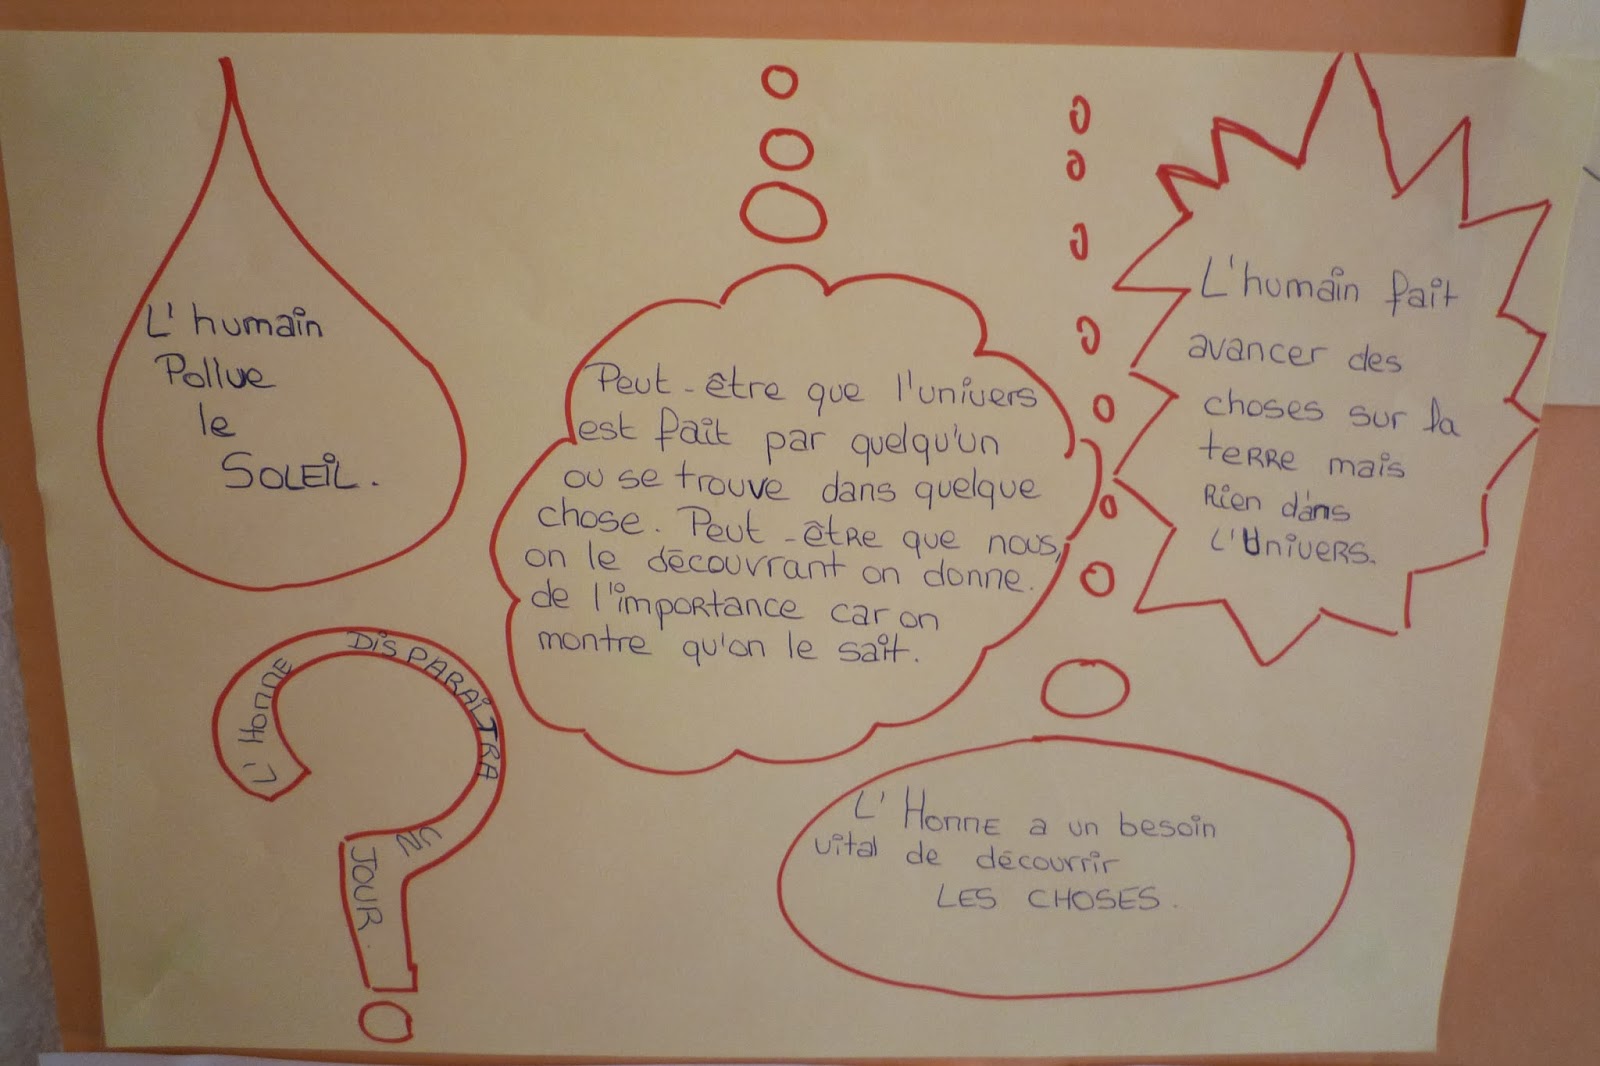 L'humain
Pollue
le
SOLEIL.
Peut-être que l'univers
est fait par quelqu'un
ou se trouve dans quelque
chose. Peut-être que nous,
on le découvrant on donne.
de l'importance car on
montre qu'on le sait.
L'humain fait
avancer des
choses sur la
terre mais
Rien dans
l'Univers.
L'HONNE DISPARAÎTRA UN JOUR.
L'HONNE a un besoin
vital de découvrir
LES CHOSES.